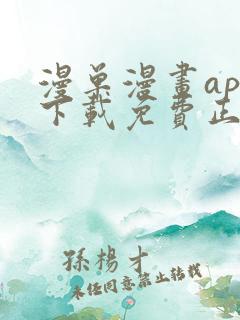 漫巢漫畫ap
下載免費正
孫楊才
未经同意禁止转载